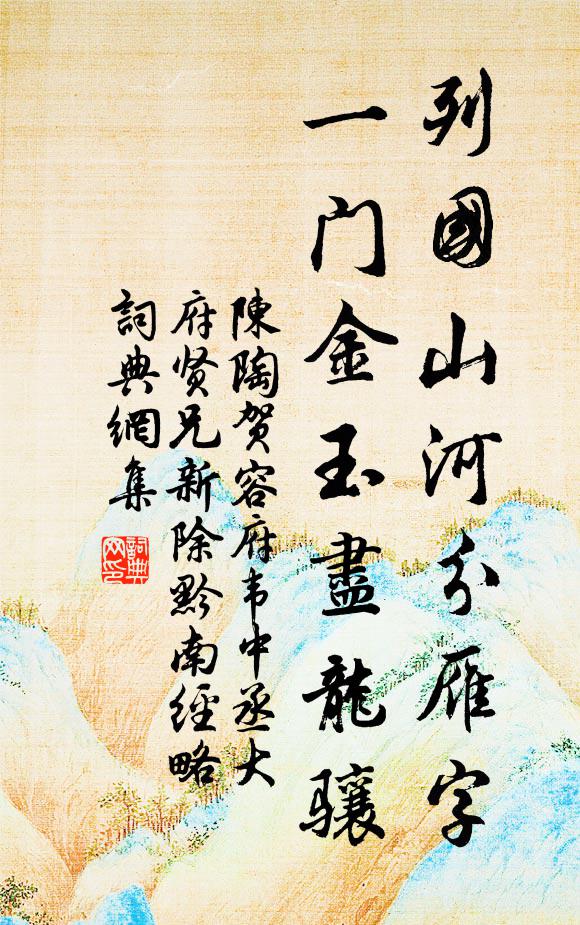 列國山河分雁字
一门金玉盡龍驤
陳陶贺容府韦中丞大
府贤兄新除黔南經略
詞典網集
詞典
网印